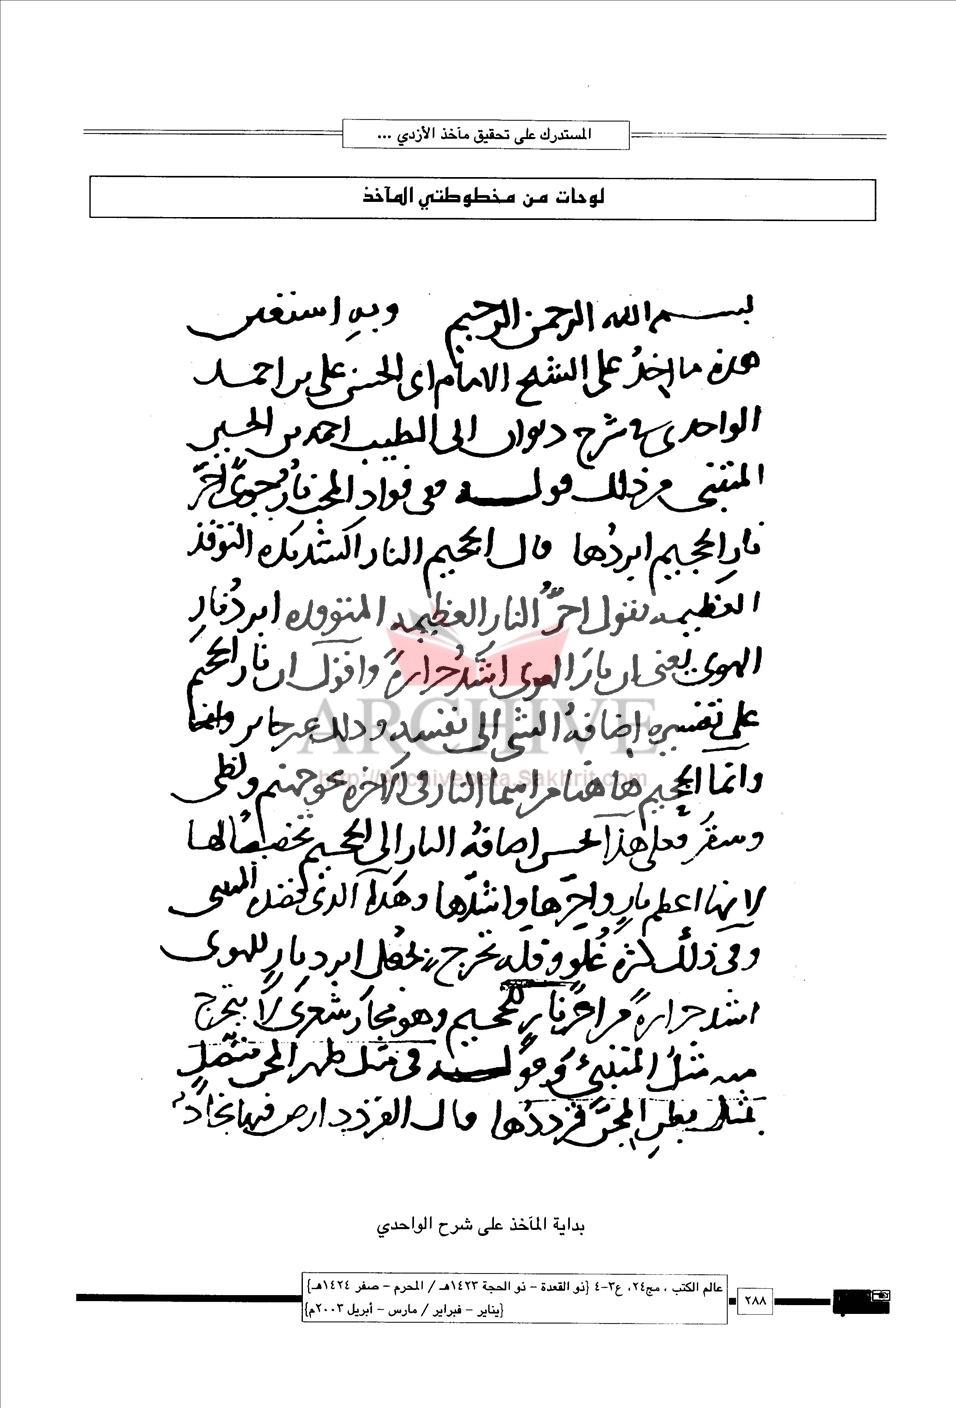 المستدرك على تحقيق مآخذ الأزدي ...
لوحات من مخطوطتي المآخذ
بسم الله الرحمن الرحيم وبه استعين
هذه مآخذ على الشيخ الامام ابى الحسن على بن احمد
الواحدى فى شرح ديوان ابى الطيب احمد بن الحسين
المتنبى من ذلك قوله ففى فواد المحب نار جوى احر
نار الجحيم ابردها قال الجحيم النار الشديدة التوقد
العظيمة يقول احر النار العظيمة المتوقده ابرد نار
الهوى يعنى ان نار الهوى اشد حرارة واقول ان نار الجحيم
على تفسيره اضافة الشى الى نفسه وذلك غير جايز وانما
وانما الجحيم هاهنا من اسما النار فى الاخره نحو جهنم ولظى
وسقر فعلى هذا اضافة النار الى الجحيم تخصيصا لها
لانها اعظم نار واحرها واشدها وهذا الذى
وفى ذلك كثرة غلو وقلة تحرج بجعل ابرد نار للهوى
اشد حرارة من احر نار للجحيم وهو مجاز شعرى لا يتحرج
من مثله المتنبى وقوله فى مثل ظهر المجن متصل
بمثل بطن المجن قرددها قال القردد ارض فيها نجاد
ARCHIVE
http://Archivebeta.Sakhrit.com
بداية المآخذ على شرح الواحدي
عالم الكتب ، مج٢٤، ع٣-٤ {ذو القعدة - ذو الحجة ١٤٢٣هـ / المحرم - صفر ١٤٢٤هـ}
{يناير - فبراير / مارس - أبريل ٢٠٠٣م}
٢٨٨